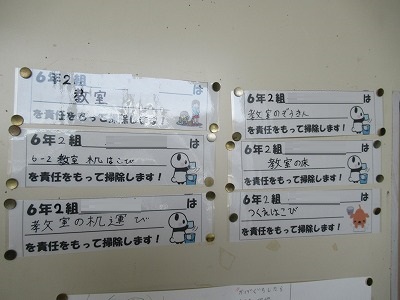 6年2組 は
教室
を責任をもって掃除します!
6年2組 は
6-2 教室 机はこび
を責任をもって掃除します!
6年2組 は
教室の机運び
を責任をもって掃除します!
6年2組 は
教室のぞうきん
を責任をもって掃除します!
6年2組 は
教室の床
を責任をもって掃除します!
6年2組 は
つくえはこび
を責任をもって掃除します!